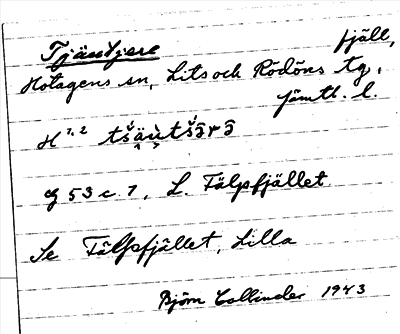 Tjäutjere fjäll,
Hotagens sn, Lits och Rödöns tg,
Jämtl. l.
H 1,2
g 53 c 7, L. Fälpfjället
Se Fälpfjället, Lilla
Björn Collinder 1943